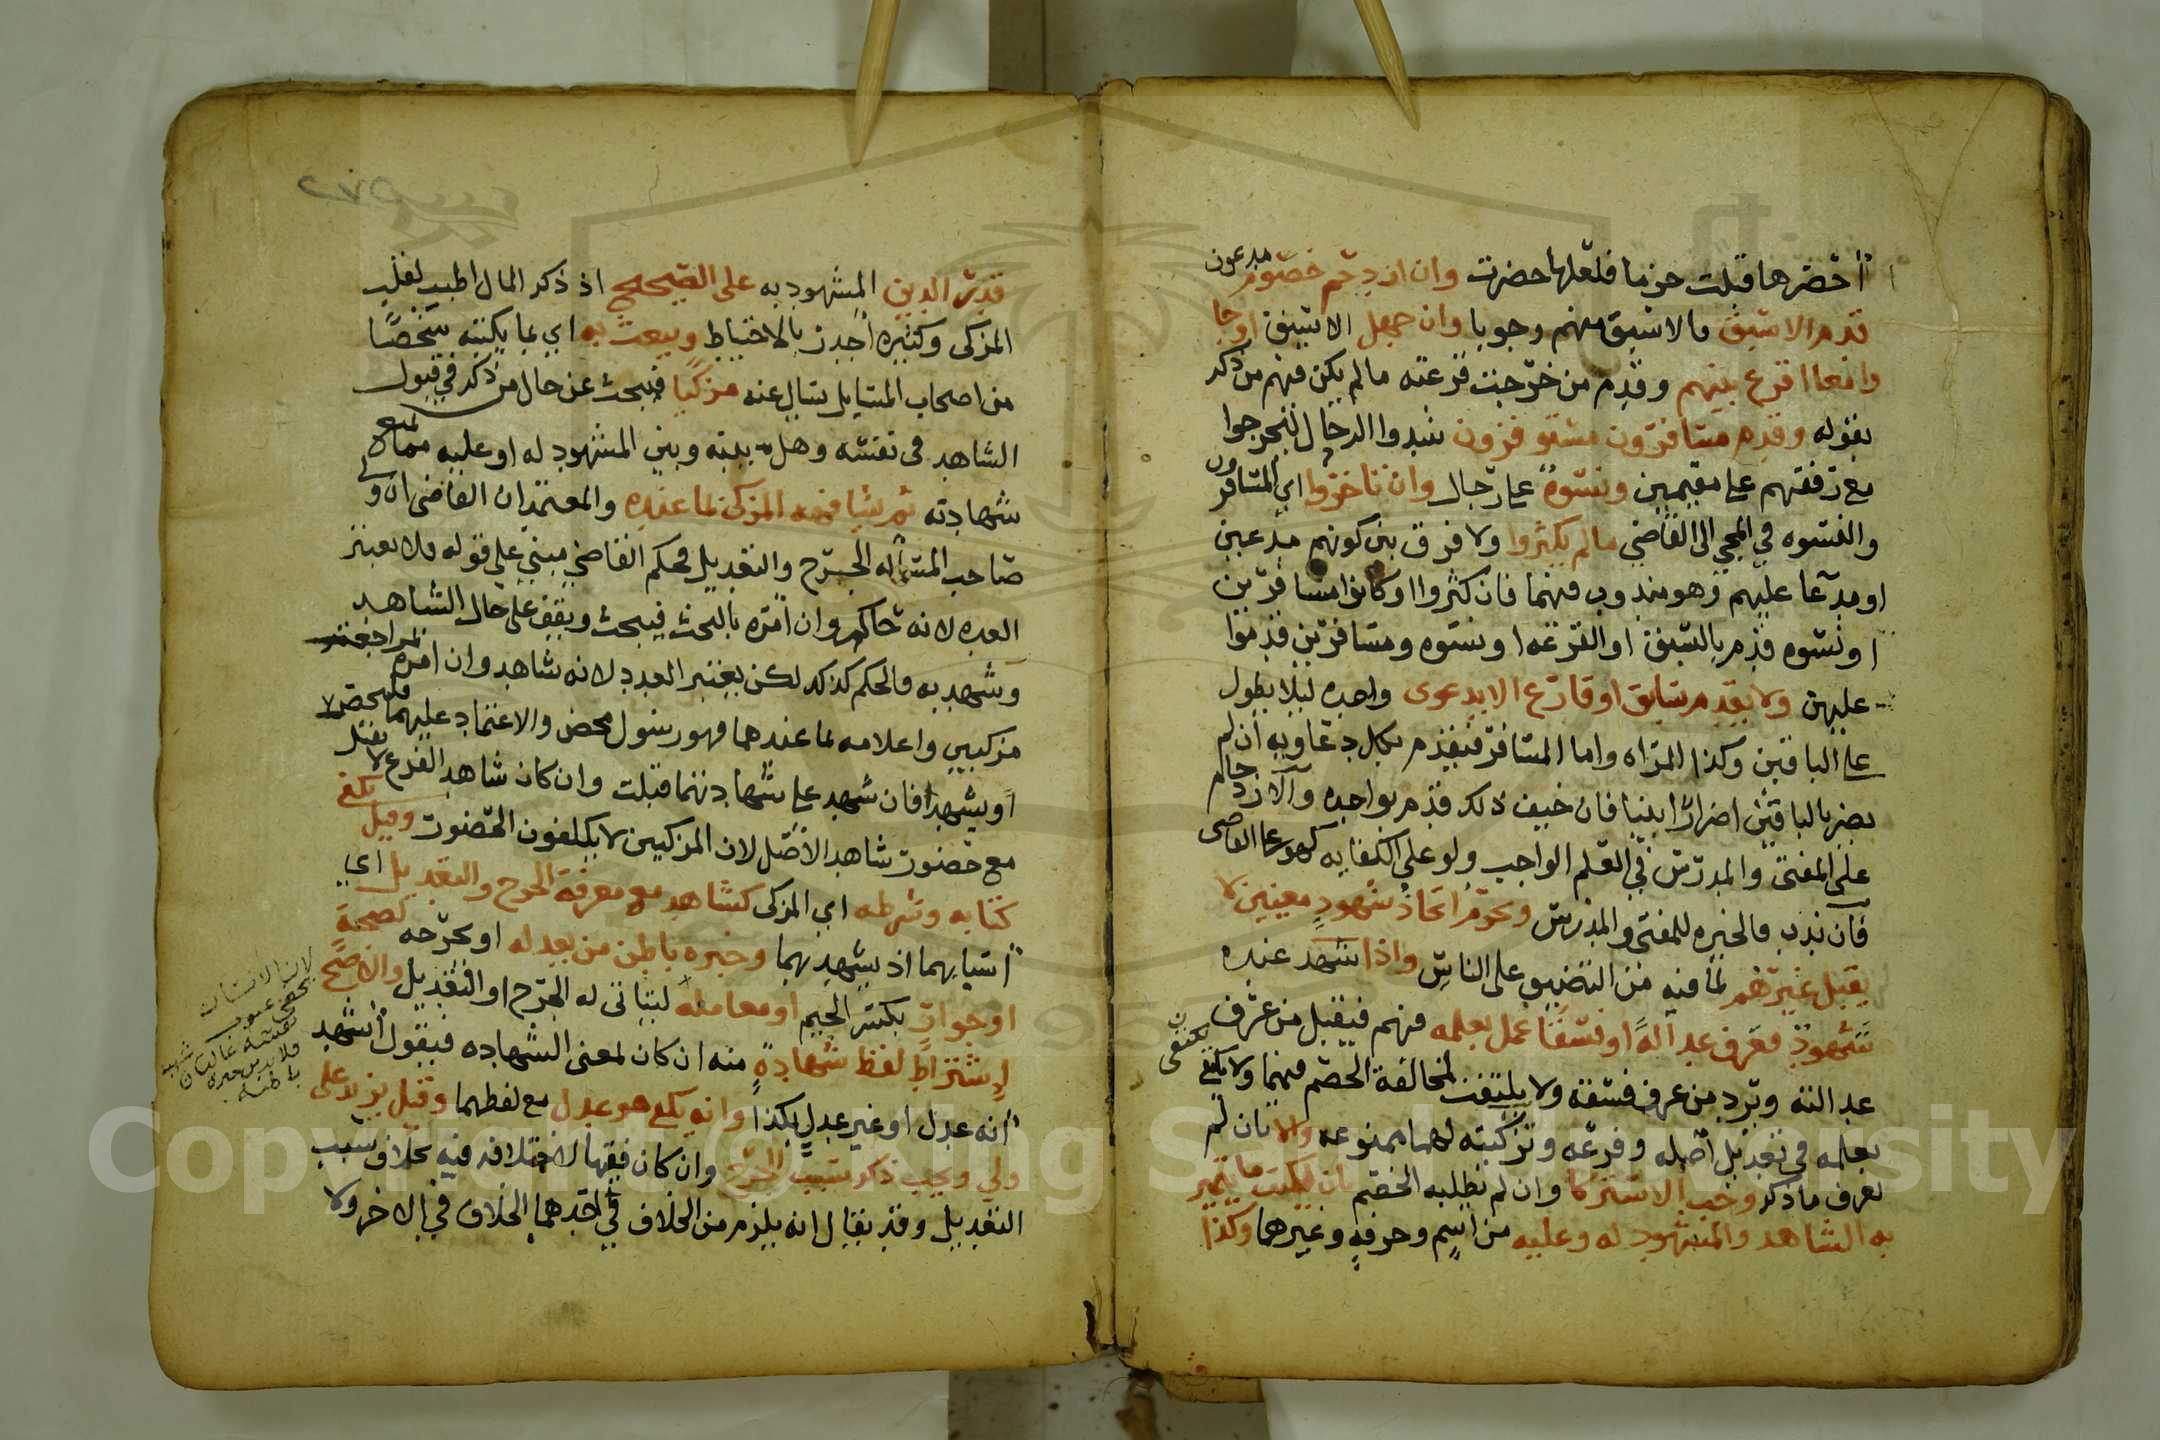 احضرها قبلت جزما فلعلها حضرت وان ازدحم خصوم مدعون
قدم الاسبق فالاسبق منهم وجوبا وان جهل الاسبق او جا
وا معا اقرع بينهم وقدم من خرجت قرعته ما لم يكن فيهم من ذكر
بقوله وقدم مسافرون مستوفزون شدوا الرحال ليخرجوا
مع رفقتهم على مقيمين ونسوة على رجال وان تاخروا اي المسافرون
والنسوه في المجي الى القاضي ما لم يكثروا ولا فرق بين كونهم مدعين
او مدعا عليهم وهو مندوب فيهما فان كثروا او كانوا مسافرين
او نسوه قدم بالسبق او القرعه او نسوه ومسافرين قدموا
عليهن ولا يقدم سابق او قارع الا بدعوى واحده ليلا يطول
على الباقين وكذا المراه واما المسافر فيقدم بكل دعاويه ان لم
يضر بالباقين اضرارا بينا فان خيف ذلك قدم بواحده والازدحام
على المفتى والمدرس في العلم الواجب ولو على الكفايه كهو على القاضى
فان ندب فالخيره للمفتى والمدرس ويحرم اتخاذ شهود معينين لا
يقبل غيرهم لما فيه من التضييق على الناس واذا شهد عنده
شهود فعرف عدالة او فسقا عمل بعلمه فيهم فيقبل من عرف
عدالته ويرد من عرف فسقه ولا يلتفت لمخالفة الخصم فيهما ولا يكتفى
بعلمه في تعديل اصله وفرعه وتزكيته لهما ممنوعه والا بان لم
يعرف ما ذكر وجب الاستزكا وان لم يطلبه الخصم بان يكتب ما يتميز
به الشاهد والمشهود له وعليه من اسم وحرفه وغيرهما وكذا
قدر الدين المشهود به على الصحيح اذ ذكر المال اطيب لقلب
المزكى وكثيره اجدر بالاحتياط ويبعث به اي بما يكتبه شخصا
من اصحاب المسايل يسال عنه مزكيا فيبحث عن حال من ذكر في قبول
الشاهد في نفسه وهل بينه وبين المشهود له او عليه ما يمنع
شهادته ثم يشافهه المزكى بما عنده والمعتمد ان القاضى ان ولى
صاحب المسأله الجرح والتعديل فحكم القاضي مبني على قوله فلا يعتبر
العدد لانه حاكم وان امره بالبحث فيبحث ويقف على حال الشاهد
وشهد به فالحكم كذلك لكن يعتبر العدد لانه شاهد وان امره بمراجعة
مزكيين واعلامه بما عندهما فهو رسول محض والاعتماد عليهما فليحضرا
او يشهدا فان شهد على شهادتهما قبلت وان كان شاهد الفرع لا يقبل
مع حضور شاهد الاصل لان المزكيين لا يكلفون الحضور وقيل يكفي
كتابه وشرطه اي المزكى كشاهد مع معرفة الجرح والتعديل اي
اسبابهما اذ يشهد بهما وخبره باطن من يعدله او يجرحه لصحبة
او جوار بكسر الجيم او معامله ليتاتى له الجرح او التعديل والاصح
اشتراط لفظ شهادة منه ان كان لمعنى الشهاده فيقول اشهد
انه عدل او غير عدل لكذا وانه يكفي هو عدل مع لفظهما وقيل يزيد على
ولي ويجب ذكر سبب الجرح وان كان فقيها للاختلاف فيه بخلاف سبب
التعديل وقد يقال انه يلزم من الخلاف في احدهما الخلاف في الاخر ولا
لان الانسان
يخفي عيوب
نفسه غالبا
فلا بد من خبره
باطنه